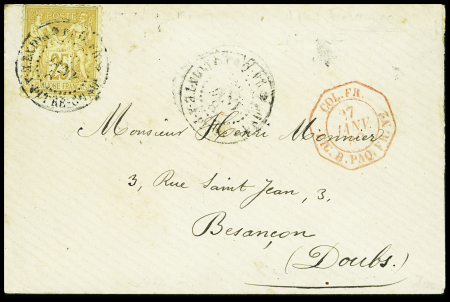 COL. FR.
27
JANV
Monsieur Henri Monnier
3, Rue Saint Jean, 3,
Besançon
(Doubs)